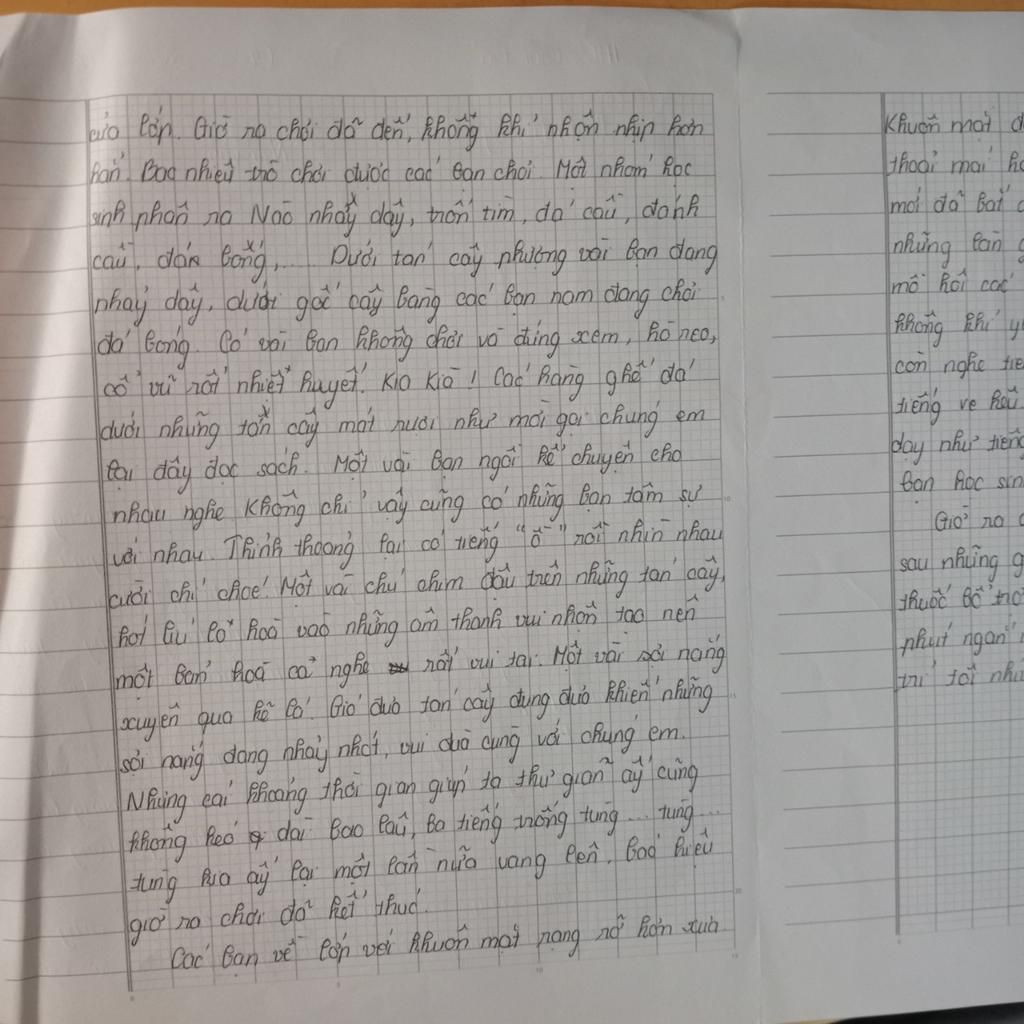 cửa lớp. Giờ ra chơi đã đến, không khí nhộn nhịp hơn
hẳn. Bao nhiêu trò chơi được các bạn chơi. Một nhóm học
sinh phấn ra Nào nhảy dây, trốn tìm, đá cầu, đánh
cầu, đá bóng,... Dưới tán cây phượng vài bạn đang
nhảy dây, dưới gốc cây bàng các bạn nam đang chơi
đá bóng. Có vài bạn không chơi và đứng xem, hò reo,
cổ vũ rất nhiệt huyết. Kia kìa! Các hàng ghế đá
dưới những tán cây mát rượi như mời gọi chúng em
lại đây đọc sách. Một vài bạn ngồi kể chuyện cho
nhau nghe Không chỉ vậy cũng có những bạn tâm sự
với nhau. Thỉnh thoảng lại có tiếng "ồ" rồi nhìn nhau
cười chí choé. Một vài chú chim đậu trên những tán cây,
hót líu lo hoà vào những âm thanh vui nhộn tạo nên
một bản hoà ca nghe rất vui tai. Một vài sợi nắng
xuyên qua kẽ lá. Gió đưa tán cây đung đưa khiến những
sợi nắng đang nhảy nhót, vui đùa cùng với chúng em.
Nhưng cái khoảng thời gian giúp ta thư giãn ấy cũng
không kéo dài bao lâu, ba tiếng trống tùng... tùng...
tùng kia ấy lại một lần nữa vang lên. Báo hiệu
giờ ra chơi đã kết thúc.
Các bạn về lớp với khuôn mặt rạng rỡ hơn xưa
Khuôn mặt
thoải mái
mới đã bắt
những lần
mồ hôi các
không khí
còn nghe
tiếng ve
dạy như
bạn học
Giờ ra
sau những
thuộc bổ
phút ngắn
trí tốt